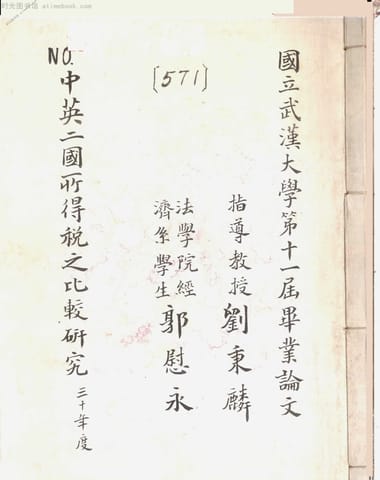 國立武漢大學第十一屆畢業論文
指導教授 劉秉麟
法學院經
濟系學生 郭慰永
[571]
NO.
中英二國所得稅之比較研究 三十年度
时光图书馆 atimebook.com